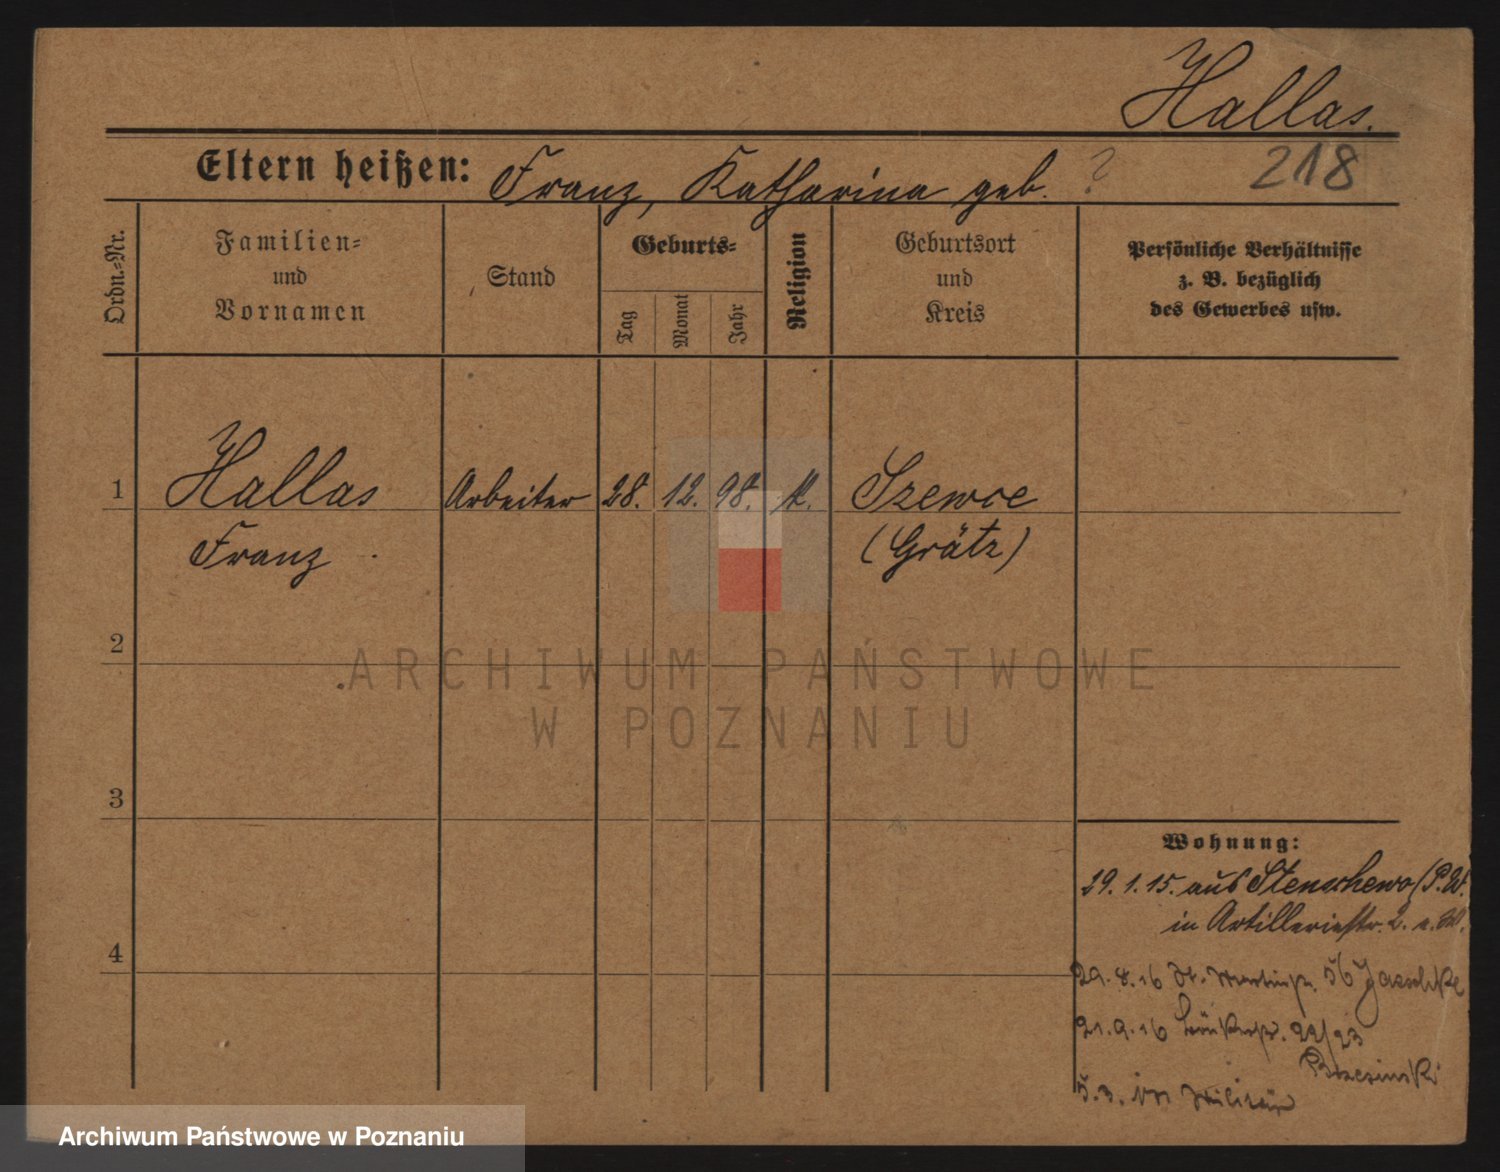 Hallas.
218
Eltern heißen: Franz, Katharina geb. ?
Ordn.=Nr.
Familien=
und
Vornamen
Stand
Geburts=
Tag
Monat
Jahr
Religion
Geburtsort
und
Kreis
Persönliche Verhältnisse
z. B. bezüglich
des Gewerbes usw.
1 Hallas Arbeiter 28. 12. 98. k. Szewce
Franz (Grätz)
2
3
4
Wohnung:
29. 1. 15. aus Stenschewo (P.W.
in Artilleriestr. 2.
29.8.16 St. Martinstr. 56 Jaeschke
21.9.16 22/23
Brzesinski
5.3. Militär
ARCHIWUM PAŃSTWOWE
W POZNANIU
Archiwum Państwowe w Poznaniu